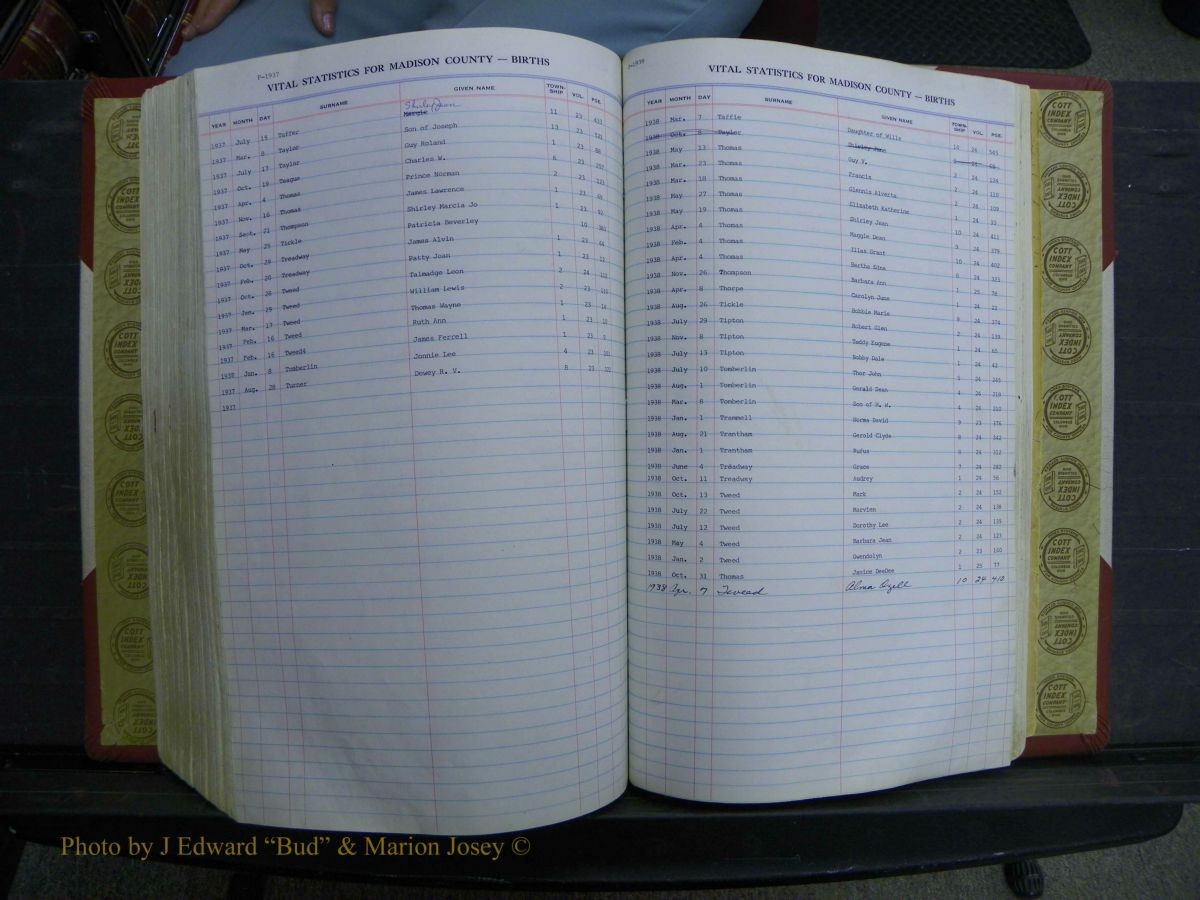 P-1937
VITAL STATISTICS FOR MADISON COUNTY — BIRTHS
YEAR MONTH DAY SURNAME GIVEN NAME TOWN-SHIP VOL. PGE.
Shirley Jean
1937 July 15 Taffer Margie 11 23 433
1937 Mar. 8 Taylor Son of Joseph 13 23 521
1937 July 17 Taylor Guy Roland 1 23 88
1937 Oct. 19 Teague Charles W. 6 23 257
1937 Apr. 4 Thomas Prince Norman 2 23 123
1937 Nov. 16 Thomas James Lawrence 1 23 69
1937 Sept. 21 Thompson Shirley Marcia Jo 1 23 92
1937 May 25 Tickle Patricia Beverley 10 383
1937 Oct. 29 Treadway James Alvin 1 23 64
1937 Feb. 20 Treadway Patty Joan 1 23 12
1937 Oct. 26 Tweed Talmadge Leon 2 24 112
1937 Jan. 25 Tweed William Lewis 2 23 115
1937 Mar. 17 Tweed Thomas Wayne 1 23 14
1937 Feb. 16 Tweed Ruth Ann 1 23 10
1937 Feb. 16 Tweed4 James Ferrell 1 23 9
1938 Jan. 8 Tomberlin Jonnie Lee 4 23 181
1937 Aug. 28 Turner Dewey R. V. 8 23 322
1937
P-1938
VITAL STATISTICS FOR MADISON COUNTY — BIRTHS
YEAR MONTH DAY SURNAME GIVEN NAME TOWN-SHIP VOL. PGE.
1938 Mar. 7 Taffie Daughter of Wills 14 24 545
1938 Oct. 8 Taylor Shirley June
1938 May 13 Thomas Guy V. 2 24 124
1938 Mar. 23 Thomas Francis 2 24 110
1938 Mar. 18 Thomas Glennis Alverta 2 24 109
1938 May 27 Thomas Elizabeth Katherine 1 24 33
1938 May 19 Thomas Shirley Jean 10 24 421
1938 Apr. 4 Thomas Maggie Dean 9 24 379
1938 Feb. 4 Thomas Illas Grant 10 24 402
1938 Apr. 4 Thomas Bertha Edna 8 24 323
1938 Nov. 26 Thompson Barbara Ann 1 25 78
1938 Apr. 8 Thorpe Carolyn June 1 24 22
1938 Aug. 26 Tickle Bobbie Marie 9 24 374
1938 July 29 Tipton Robert Glen 2 24 139
1938 Nov. 8 Tipton Teddy Eugene 1 24 65
1938 July 13 Tipton Bobby Dale 1 24 42
1938 July 10 Tomberlin Thor John 5 24 245
1938 Aug. 1 Tomberlin Gerald Dean 4 24 219
1938 Mar. 8 Tomberlin Son of M. W. 4 24 210
1938 Jan. 1 Trammell Norma David 9 23 376
1938 Aug. 21 Trantham Gerold Clyde 8 24 342
1938 Jan. 1 Trantham Rufus 8 24 312
1938 June 4 Treadway Grace 7 24 282
1938 Oct. 11 Treadway Audrey 1 24 56
1938 Oct. 13 Tweed Mark 2 24 152
1938 July 22 Tweed Marvien 2 24 136
1938 July 12 Tweed Dorothy Lee 2 24 135
1938 May 4 Tweed Barbara Jean 2 24 123
1938 Jan. 2 Tweed Gwendolyn 2 23 160
1938 Oct. 31 Thomas Janice DeeDee 1 25 77
1938 Apr. 7 Tweed Alma Ozell 10 24 410
COTT INDEX COMPANY
Photo by J Edward “Bud” & Marion Josey ©